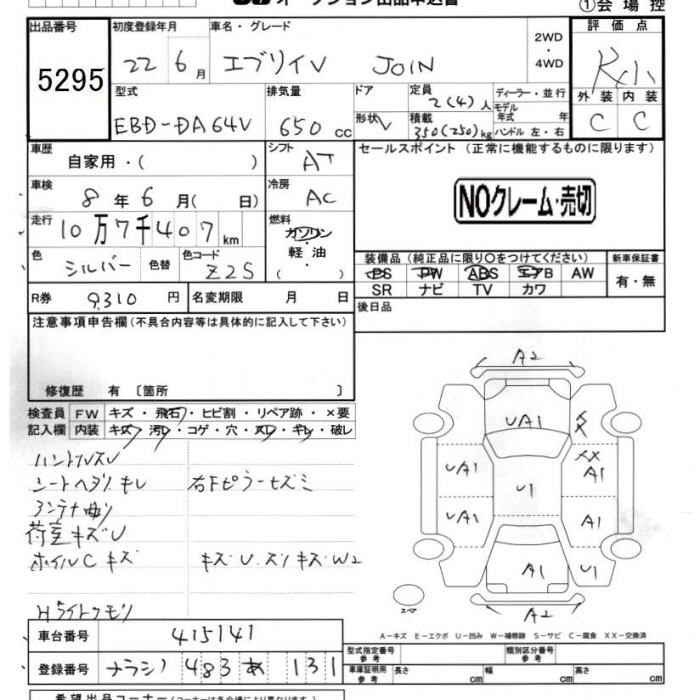 オークション出品申込書
①会場控
出品番号 初度登録年月 車名・グレード 評価点
5295 22 6月 エブリイV JOIN 2WD・4WD
型式 排気量 ドア 定員 ディーラー・並行 外装 内装
EBD-DA64V 650cc 形状 V 2(4)人 モデル年式 年 C C
積載 350(250)kg ハンドル 左・右
車歴 自家用・( ) シフト AT セールスポイント(正常に機能するものに限ります)
車検 8年6月( 日) 冷房 AC NOクレーム・売切
走行 10万7千407km 燃料 ガソリン・軽油 ( )
色 シルバー 色替 色コード Z2S 装備品(純正品に限り○をつけてください) 新車保証書
PS PW ABS エアB AW 有・無
R券 9310円 名変期限 月 日 SR ナビ TV カワ
注意事項申告欄(不具合内容等は具体的に記入して下さい) 後日品
修復歴 有〔箇所 〕
検査員 FW キズ・飛石・ヒビ割・リペア跡・×要
記入欄 内装 キズ・汚レ・コゲ・穴・スレ・キレ・破レ
ハンドルスレ
シートヘタリ モレ 右Fピラーキズミ
アンテナ曲り
荷室キズU
ホイルC キズ キズ U.スリキズ W2
Hライトクモリ
A2
UA1 XX
UA1 U1 A1
UA1 A1
A1 U1
スペア A2
A-キズ E-エクボ U-凹み W-補修跡 S-サビ C-腐食 XX-交換済
車台番号 415141
型式指定番号 参考 類別区分番号 参考
登録番号 ナラシ 483 あ 131
車庫証明用 参考 長さ cm 幅 cm 高さ cm
希望出品コーナー